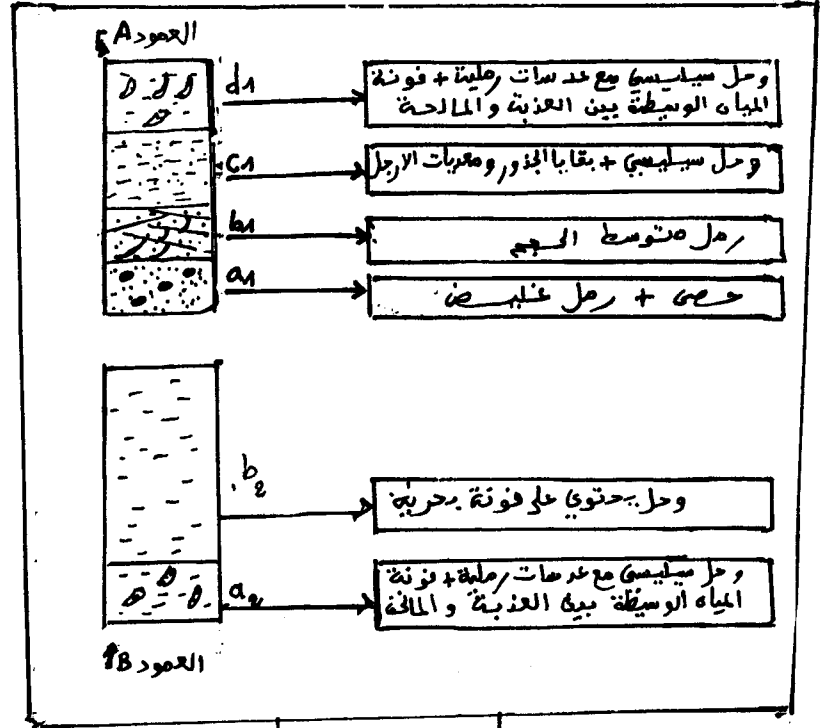 العمود A
d1
وحل سيليسي مع عدسات رملية + فونة
المياه الوسيطة بين العذبة و المالحة
c1
وحل سيليسي + بقايا الجذور ومعديات الارجل
b1
رمل متوسط الحجم
a1
حصى + رمل غليض
b2
وحل يحتوي على فونة بحرية
a2
وحل سيليسي مع عدسات رملية + فونة
المياه الوسيطة بين العذبة و المالحة
العمود B